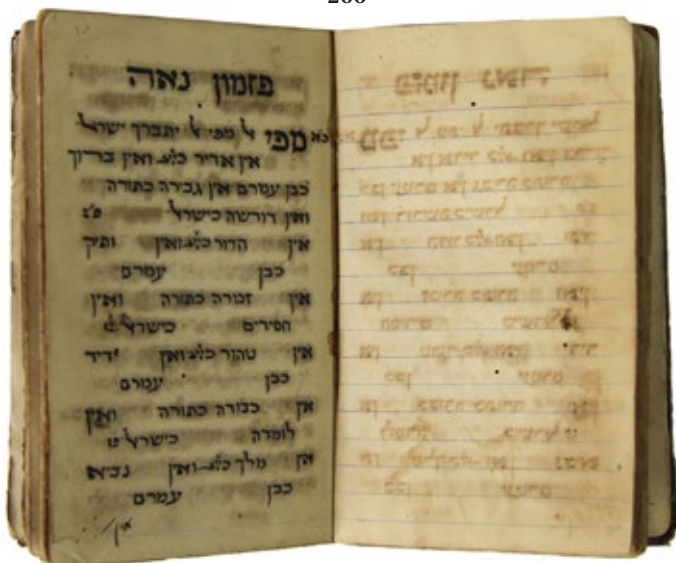 פזמון נאה
מפי אל מפי אל יתברך ישראל
אין אדיר כה' ואין ברוך
כבן עמרם אין גבירה כתורה
ואין דורשה כישראל
אין הדור כה' ואין ותיק
כבן עמרם
אין זמרה כתורה ואין
חסידים כישראל
אין טהור כה' ואין ידיד
כבן עמרם
אין כבודה כתורה ואין
לומדה כישראל
אין מלך כה' ואין נביא
כבן עמרם
אין